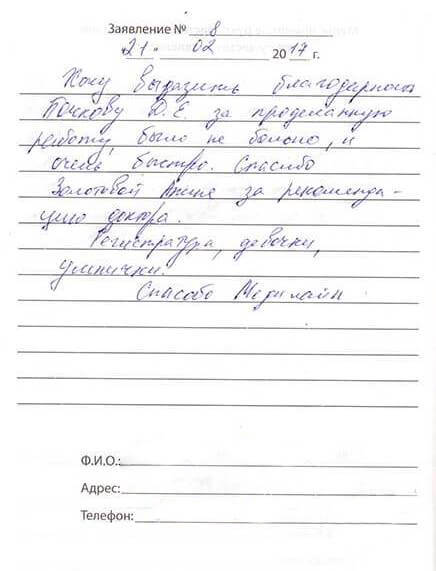 Заявление № 8
"21" 02 2017 г.
Хочу выразить благодарность
Почкову Д.Е. за проделанную
работу, было не больно, и
очень быстро. Спасибо
Золотовой Анне за рекоменда-
цию доктора.
Регистратура, девочки,
умнички.
Спасибо Медилайн
Ф.И.О.:
Адрес:
Телефон: